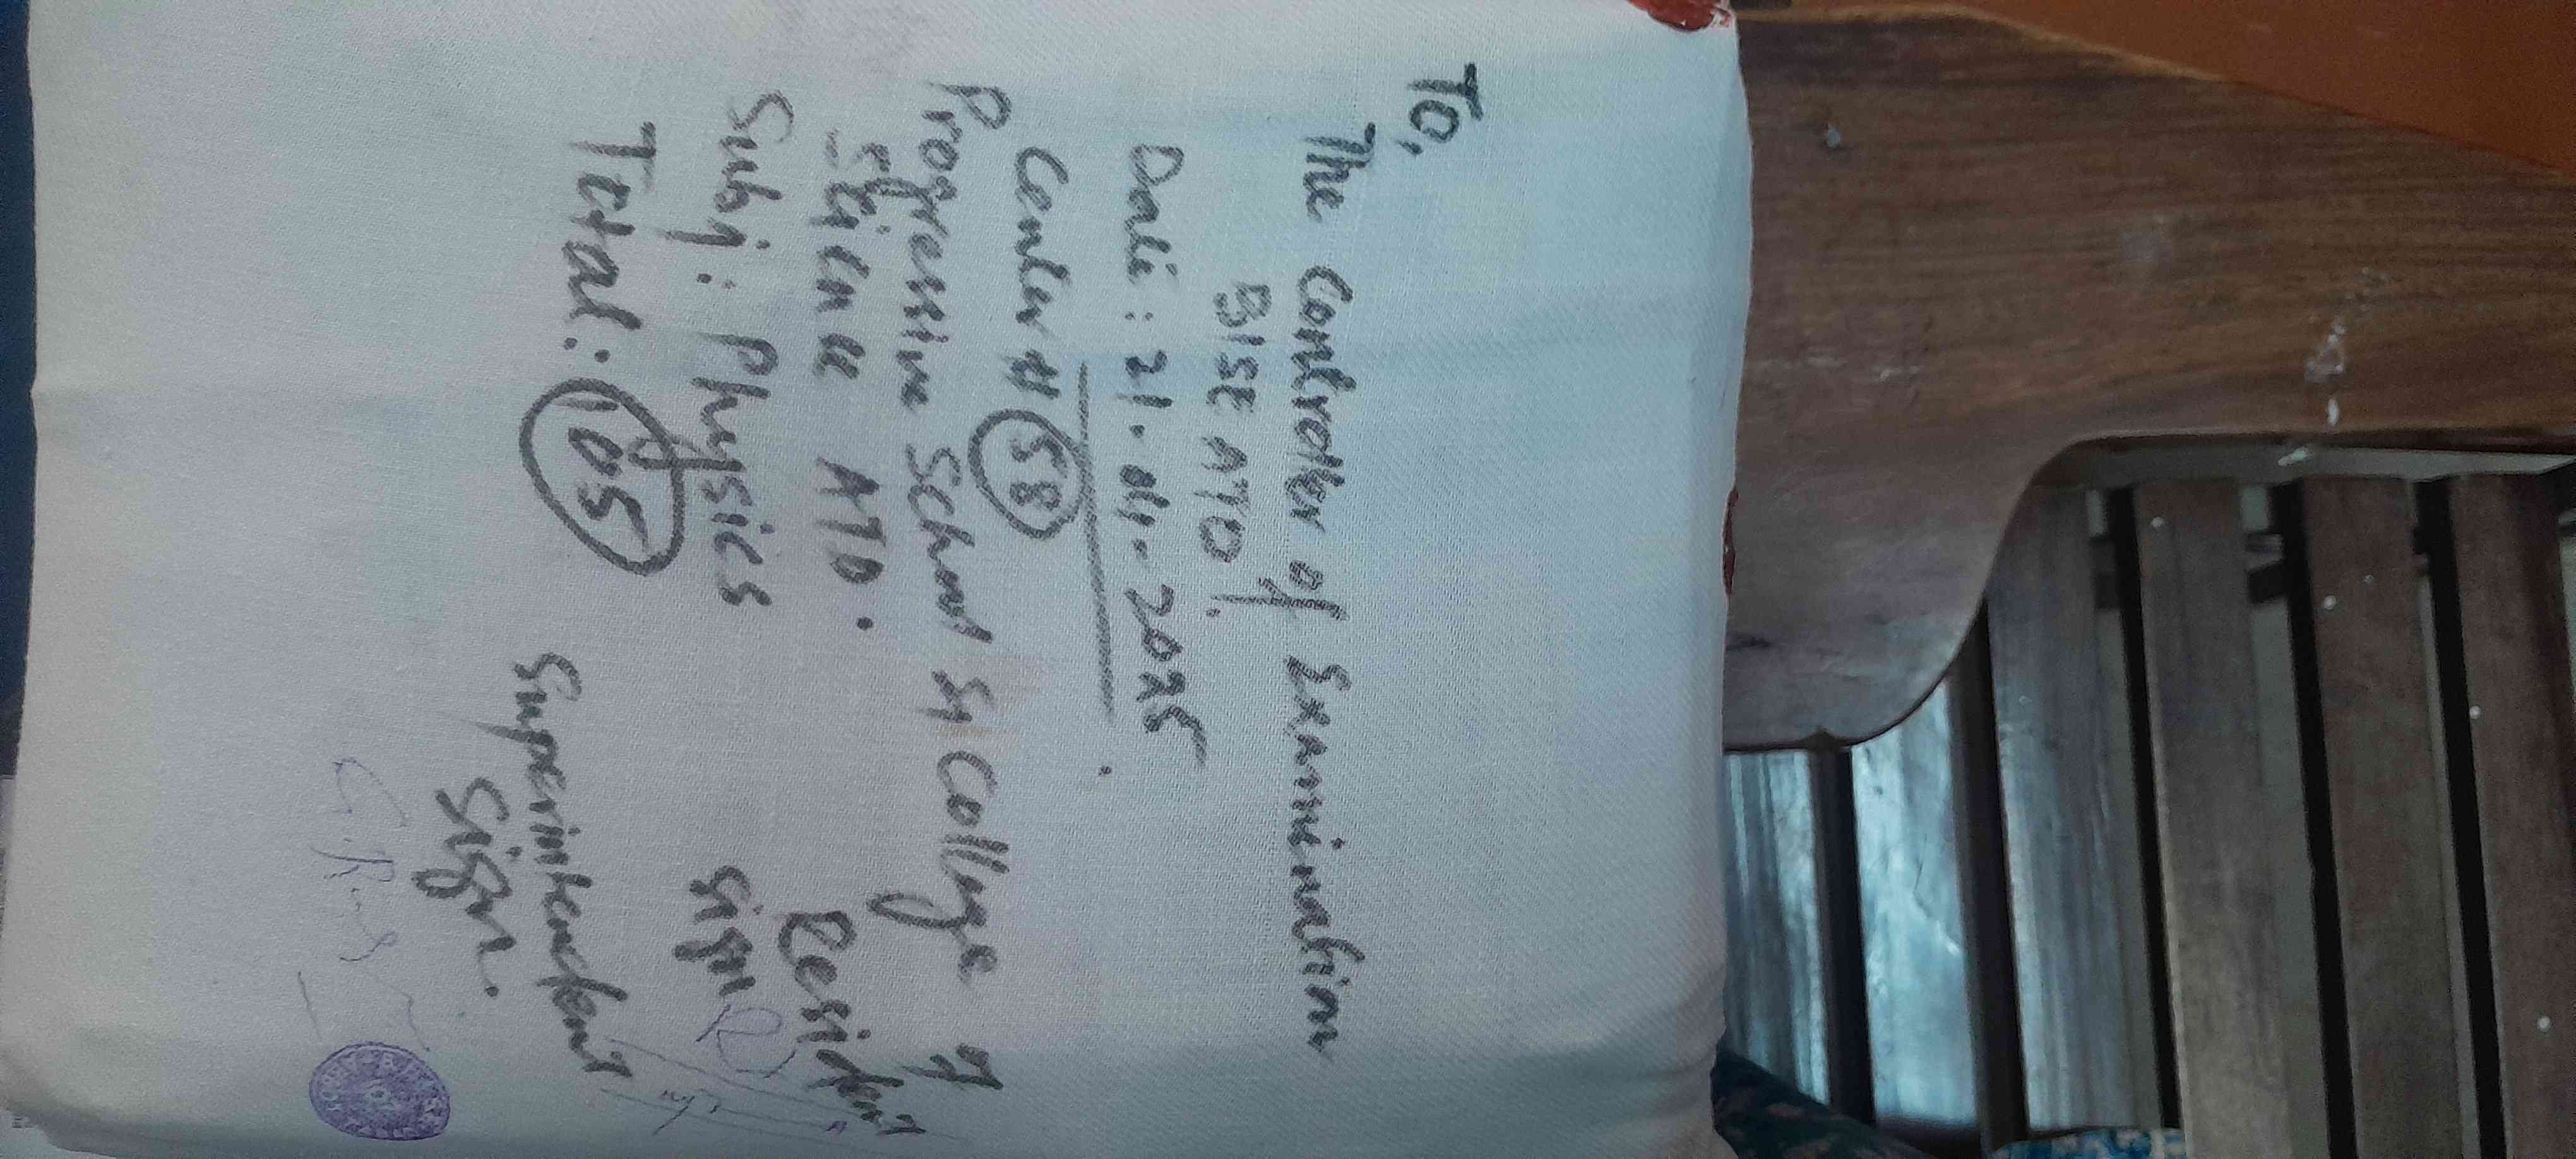 To,
The Controller of Examination
BISE ATD.
Date : 21.04.2025
Center # 58
Progressive School & College of
Science ATD.
Subj : Physics
Total : 105
Resident
Sign
Superintendent
Sign.